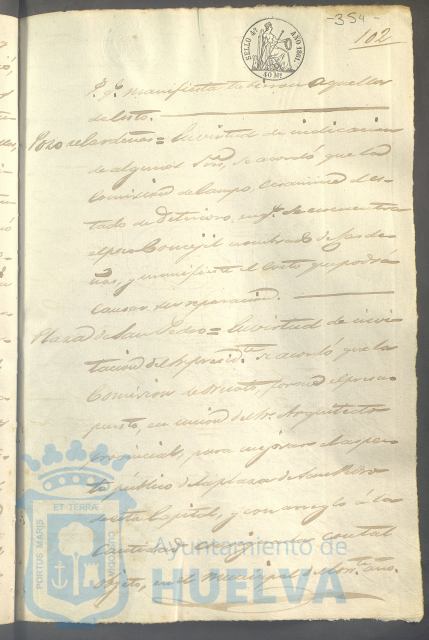 -354-
102
SELLO 4º AÑO 1861.
40 Ms
manifiesta
Pozo = En virtud de indicacion
de algunos Sres, se acordó que la
Comision de Campo, examine el es-
tado de deterioro, en qe. se encuentra
el pozo Concejil nombrado de
y manifieste el costo que podrá
causar su reparacion.
Plaza de San Pedro = En virtud de invi-
tacion del Sr presidte. se acordó, que la
Comision de ornato, forme el presu-
puesto, en union del Sr. Arquitecto
provincial, para mejorar el aspec-
to público de la plaza de San Pedro
de esta Capital, y con arreglo á la
cantidad con tal
objeto, en el municipal del año.
PORTUS MARIS ET TERRÆ CUSTODIA
Ayuntamiento de
HUELVA